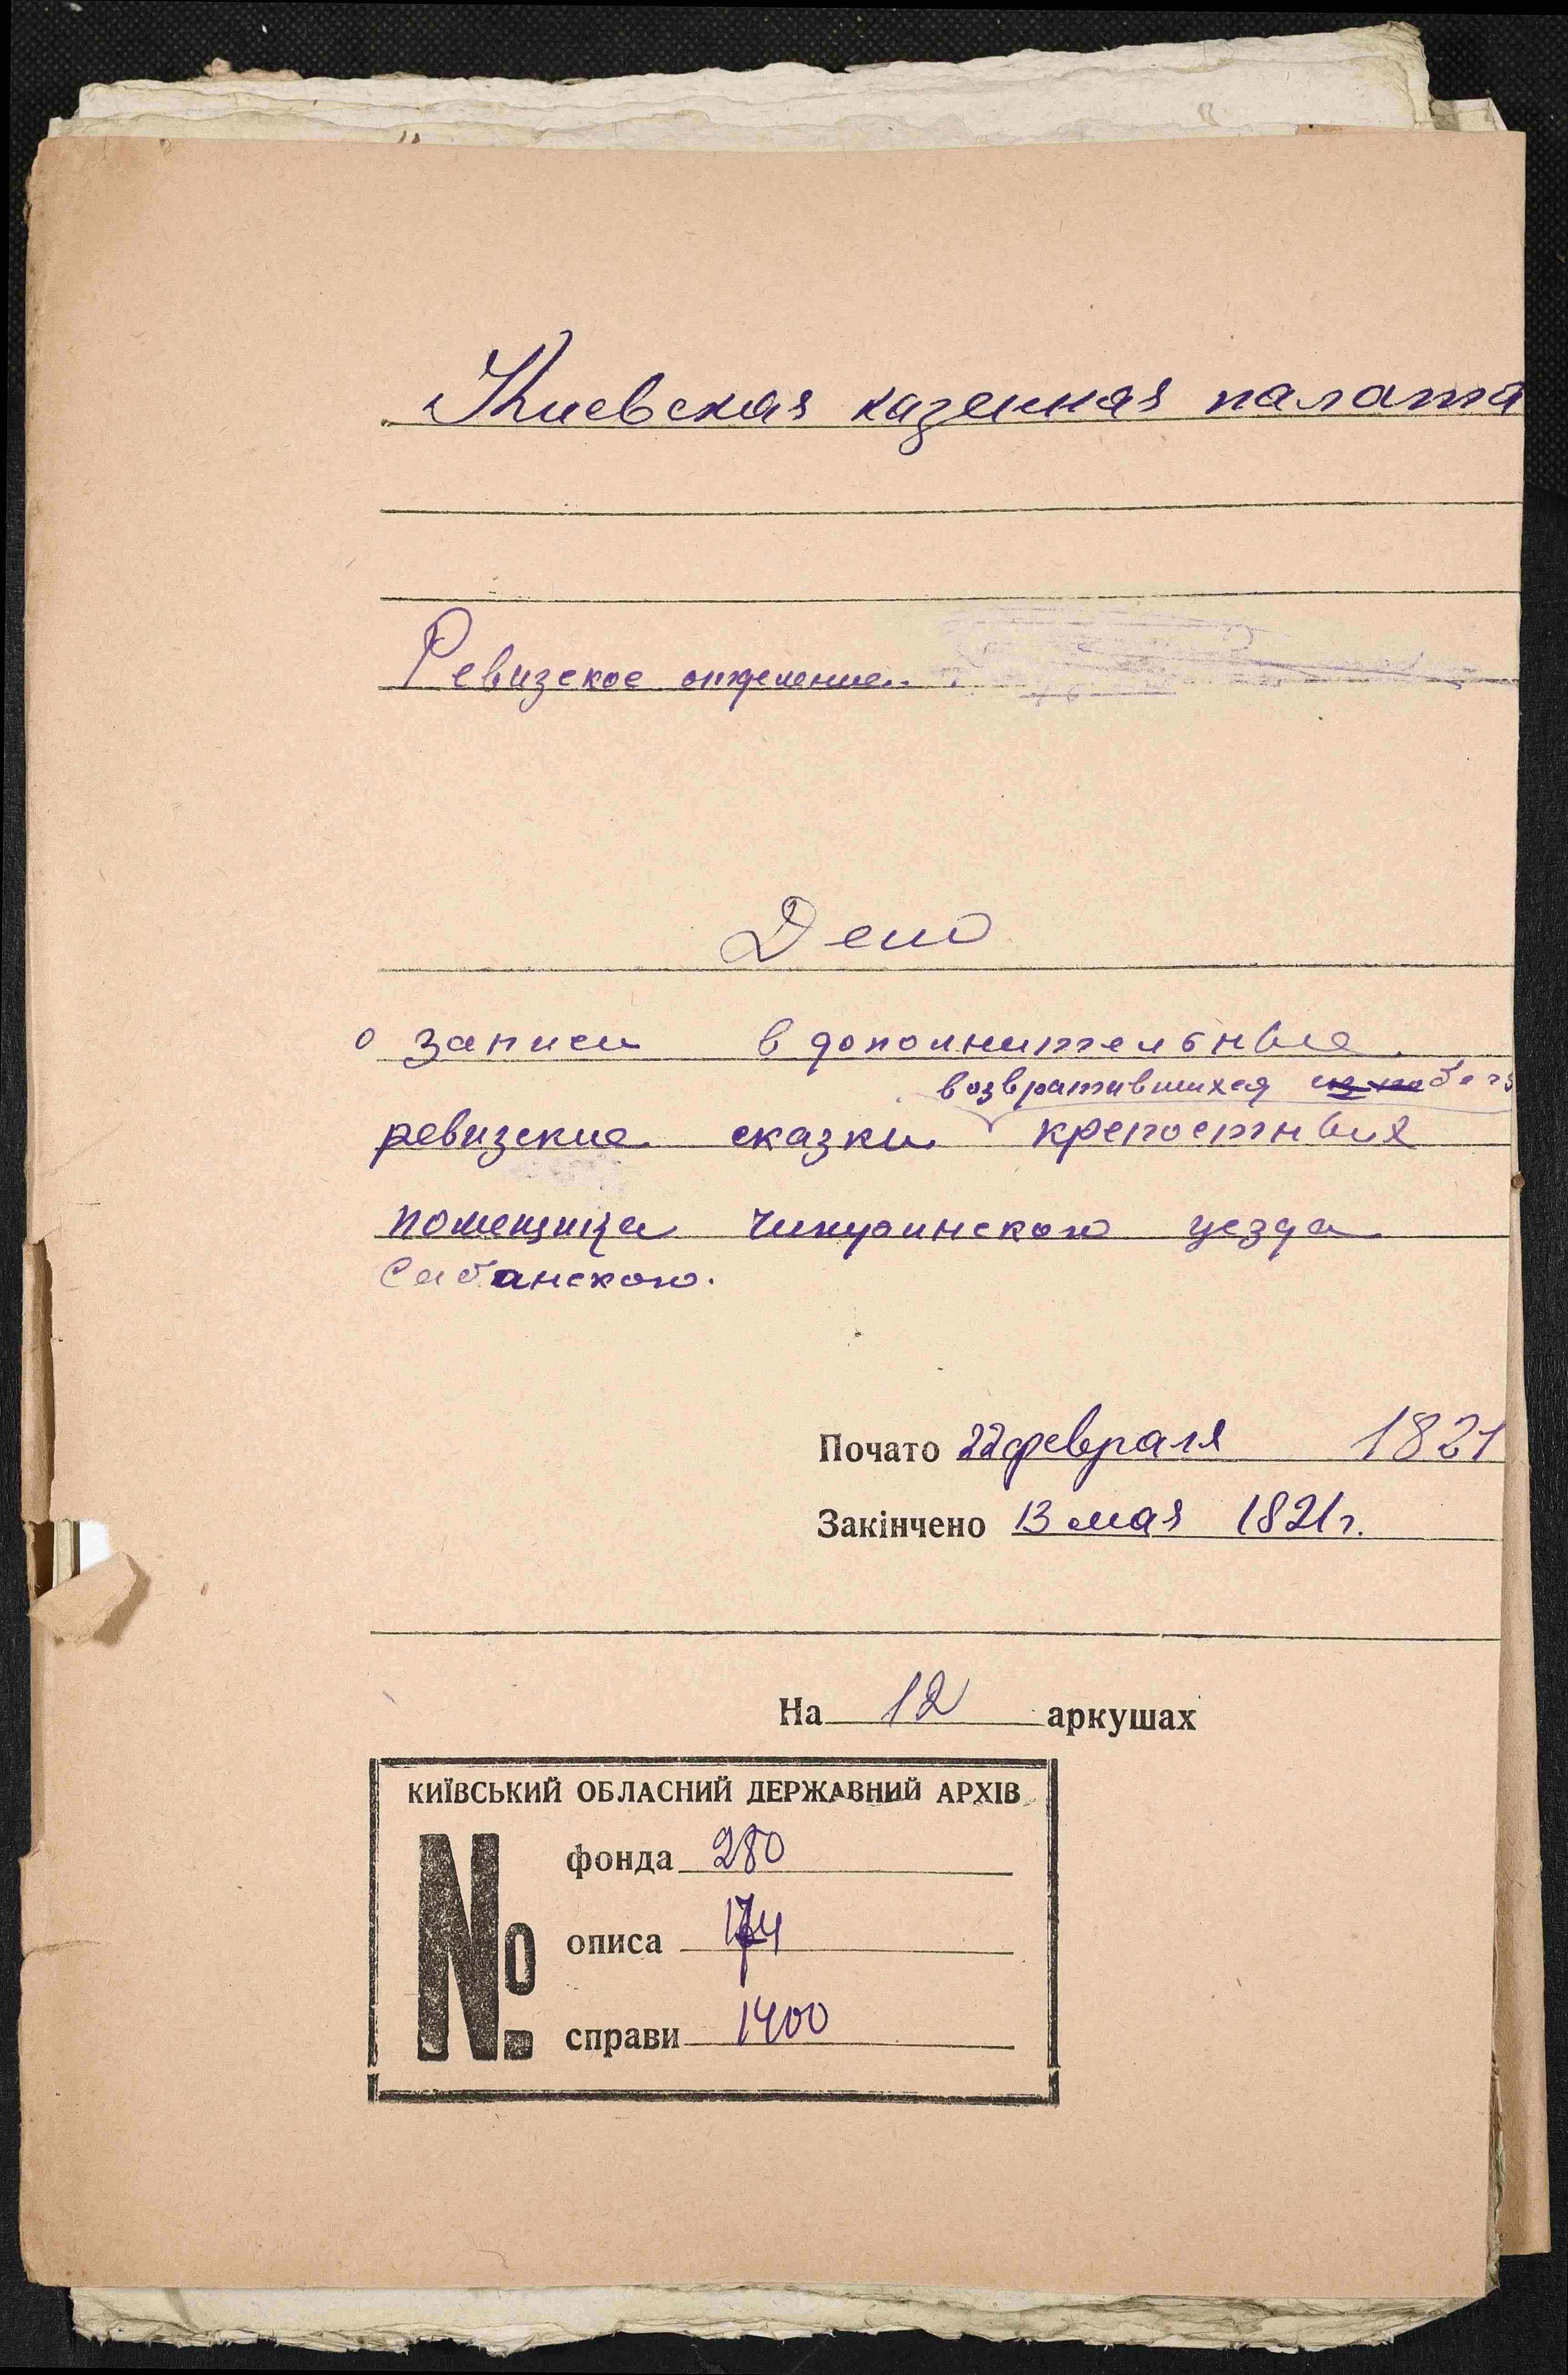 Киевская казенная палата
Ревизское отделение
Дело
о записи в дополнительные
возвратившихся из побега
ревизские сказки крепостных
помещика Чигиринского уезда
Сабанского.
Почато 22 февраля 1821
Закінчено 13 мая 1821 г.
На 12 аркушах
КИЇВСЬКИЙ ОБЛАСНИЙ ДЕРЖАВНИЙ АРХІВ
№
фонда 280
описа 174
справи 1400